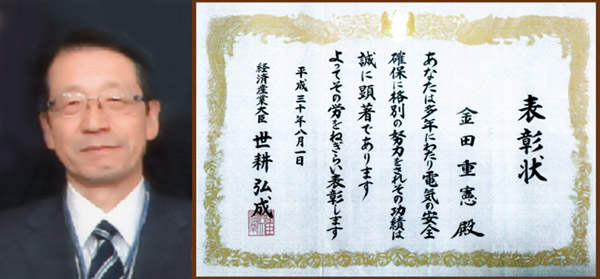 表彰状
金田重憲殿
あなたは多年にわたり電気の安全
確保に格別の努力をされその功績は
誠に顕著であります
よってその労をねぎらい表彰します
平成三十年八月一日
経済産業大臣 世耕弘成